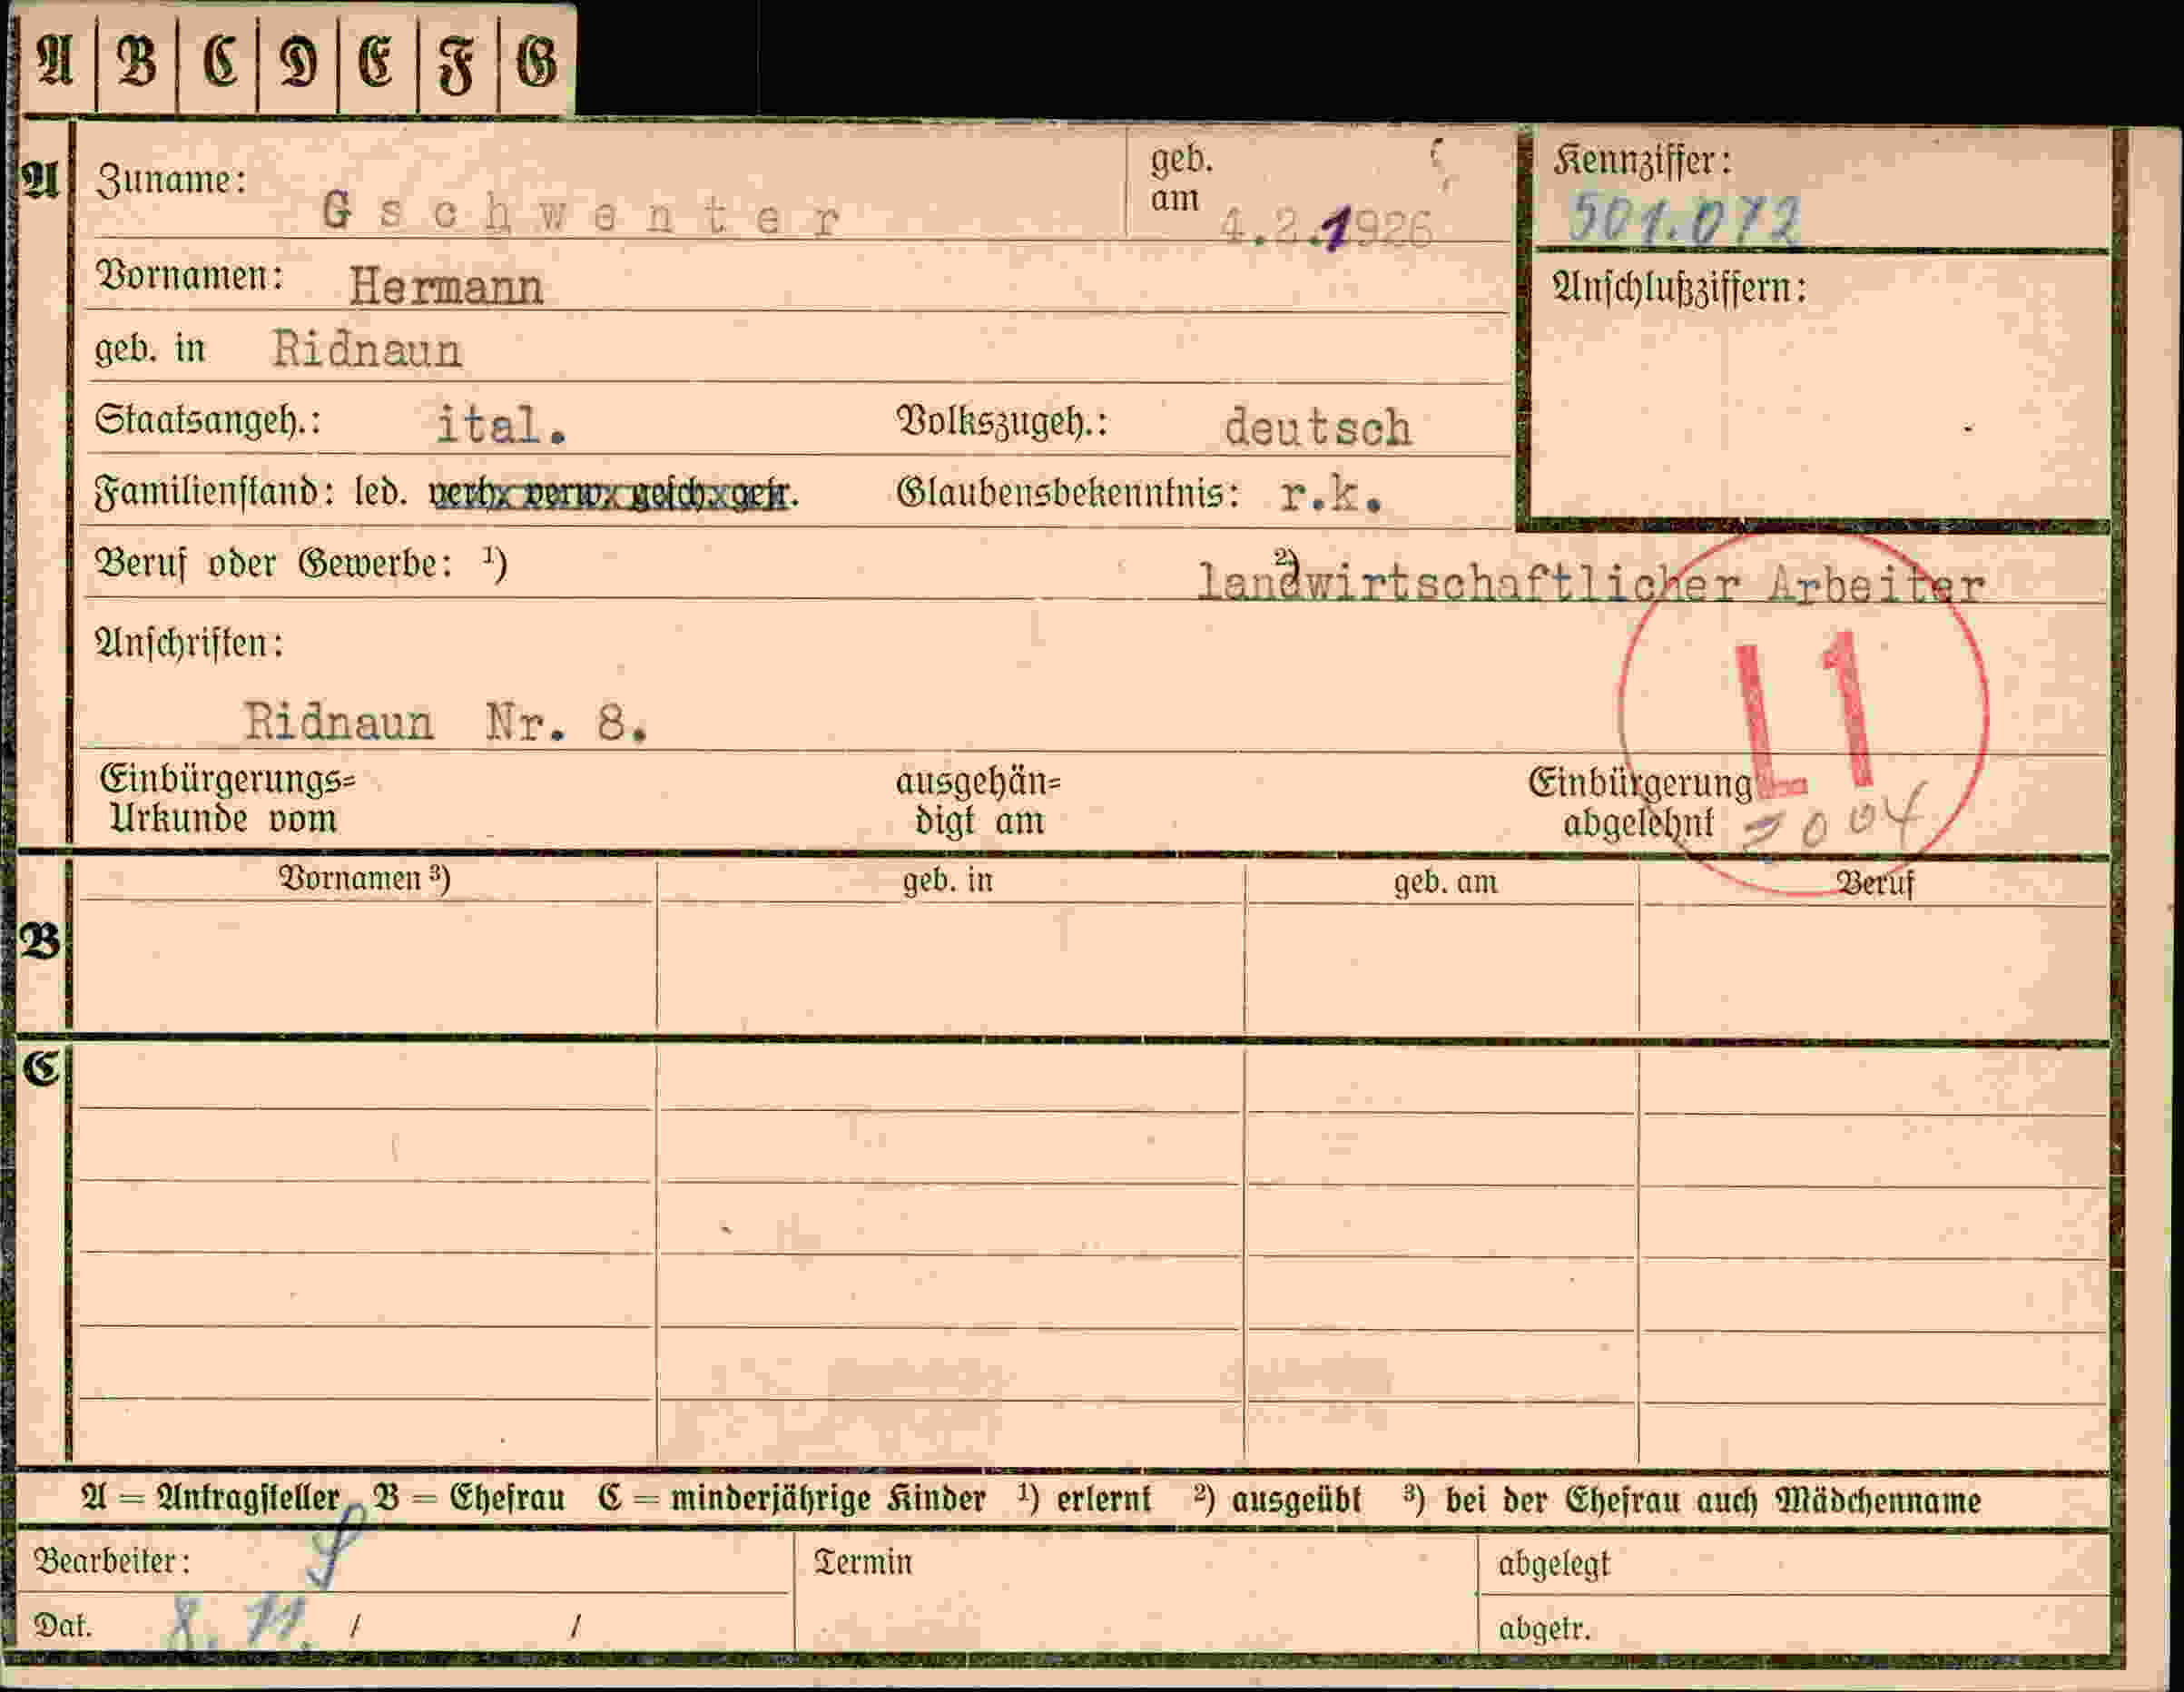 A B C D E F G
A Zuname: Gschwenter geb. am 4.2.1926 Kennziffer: 501.072
Vornamen: Hermann Anschlußziffern:
geb. in Ridnaun
Staatsangeh.: ital. Volkszugeh.: deutsch
Familienstand: led. verh. verw. gesch. getr. Glaubensbekenntnis: r.k.
Beruf oder Gewerbe: ¹) ²) landwirtschaftlicher Arbeiter
Anschriften:
L1
Ridnaun Nr. 8.
Einbürgerungs= ausgehän= Einbürgerung
Urkunde vom digt am abgelehnt
Vornamen ³) geb. in geb. am Beruf
B
C
A = Antragsteller B = Ehefrau C = minderjährige Kinder ¹) erlernt ²) ausgeübt ³) bei der Ehefrau auch Mädchenname
Bearbeiter: Termin abgelegt
Dat. 8. 11. / / abgetr.